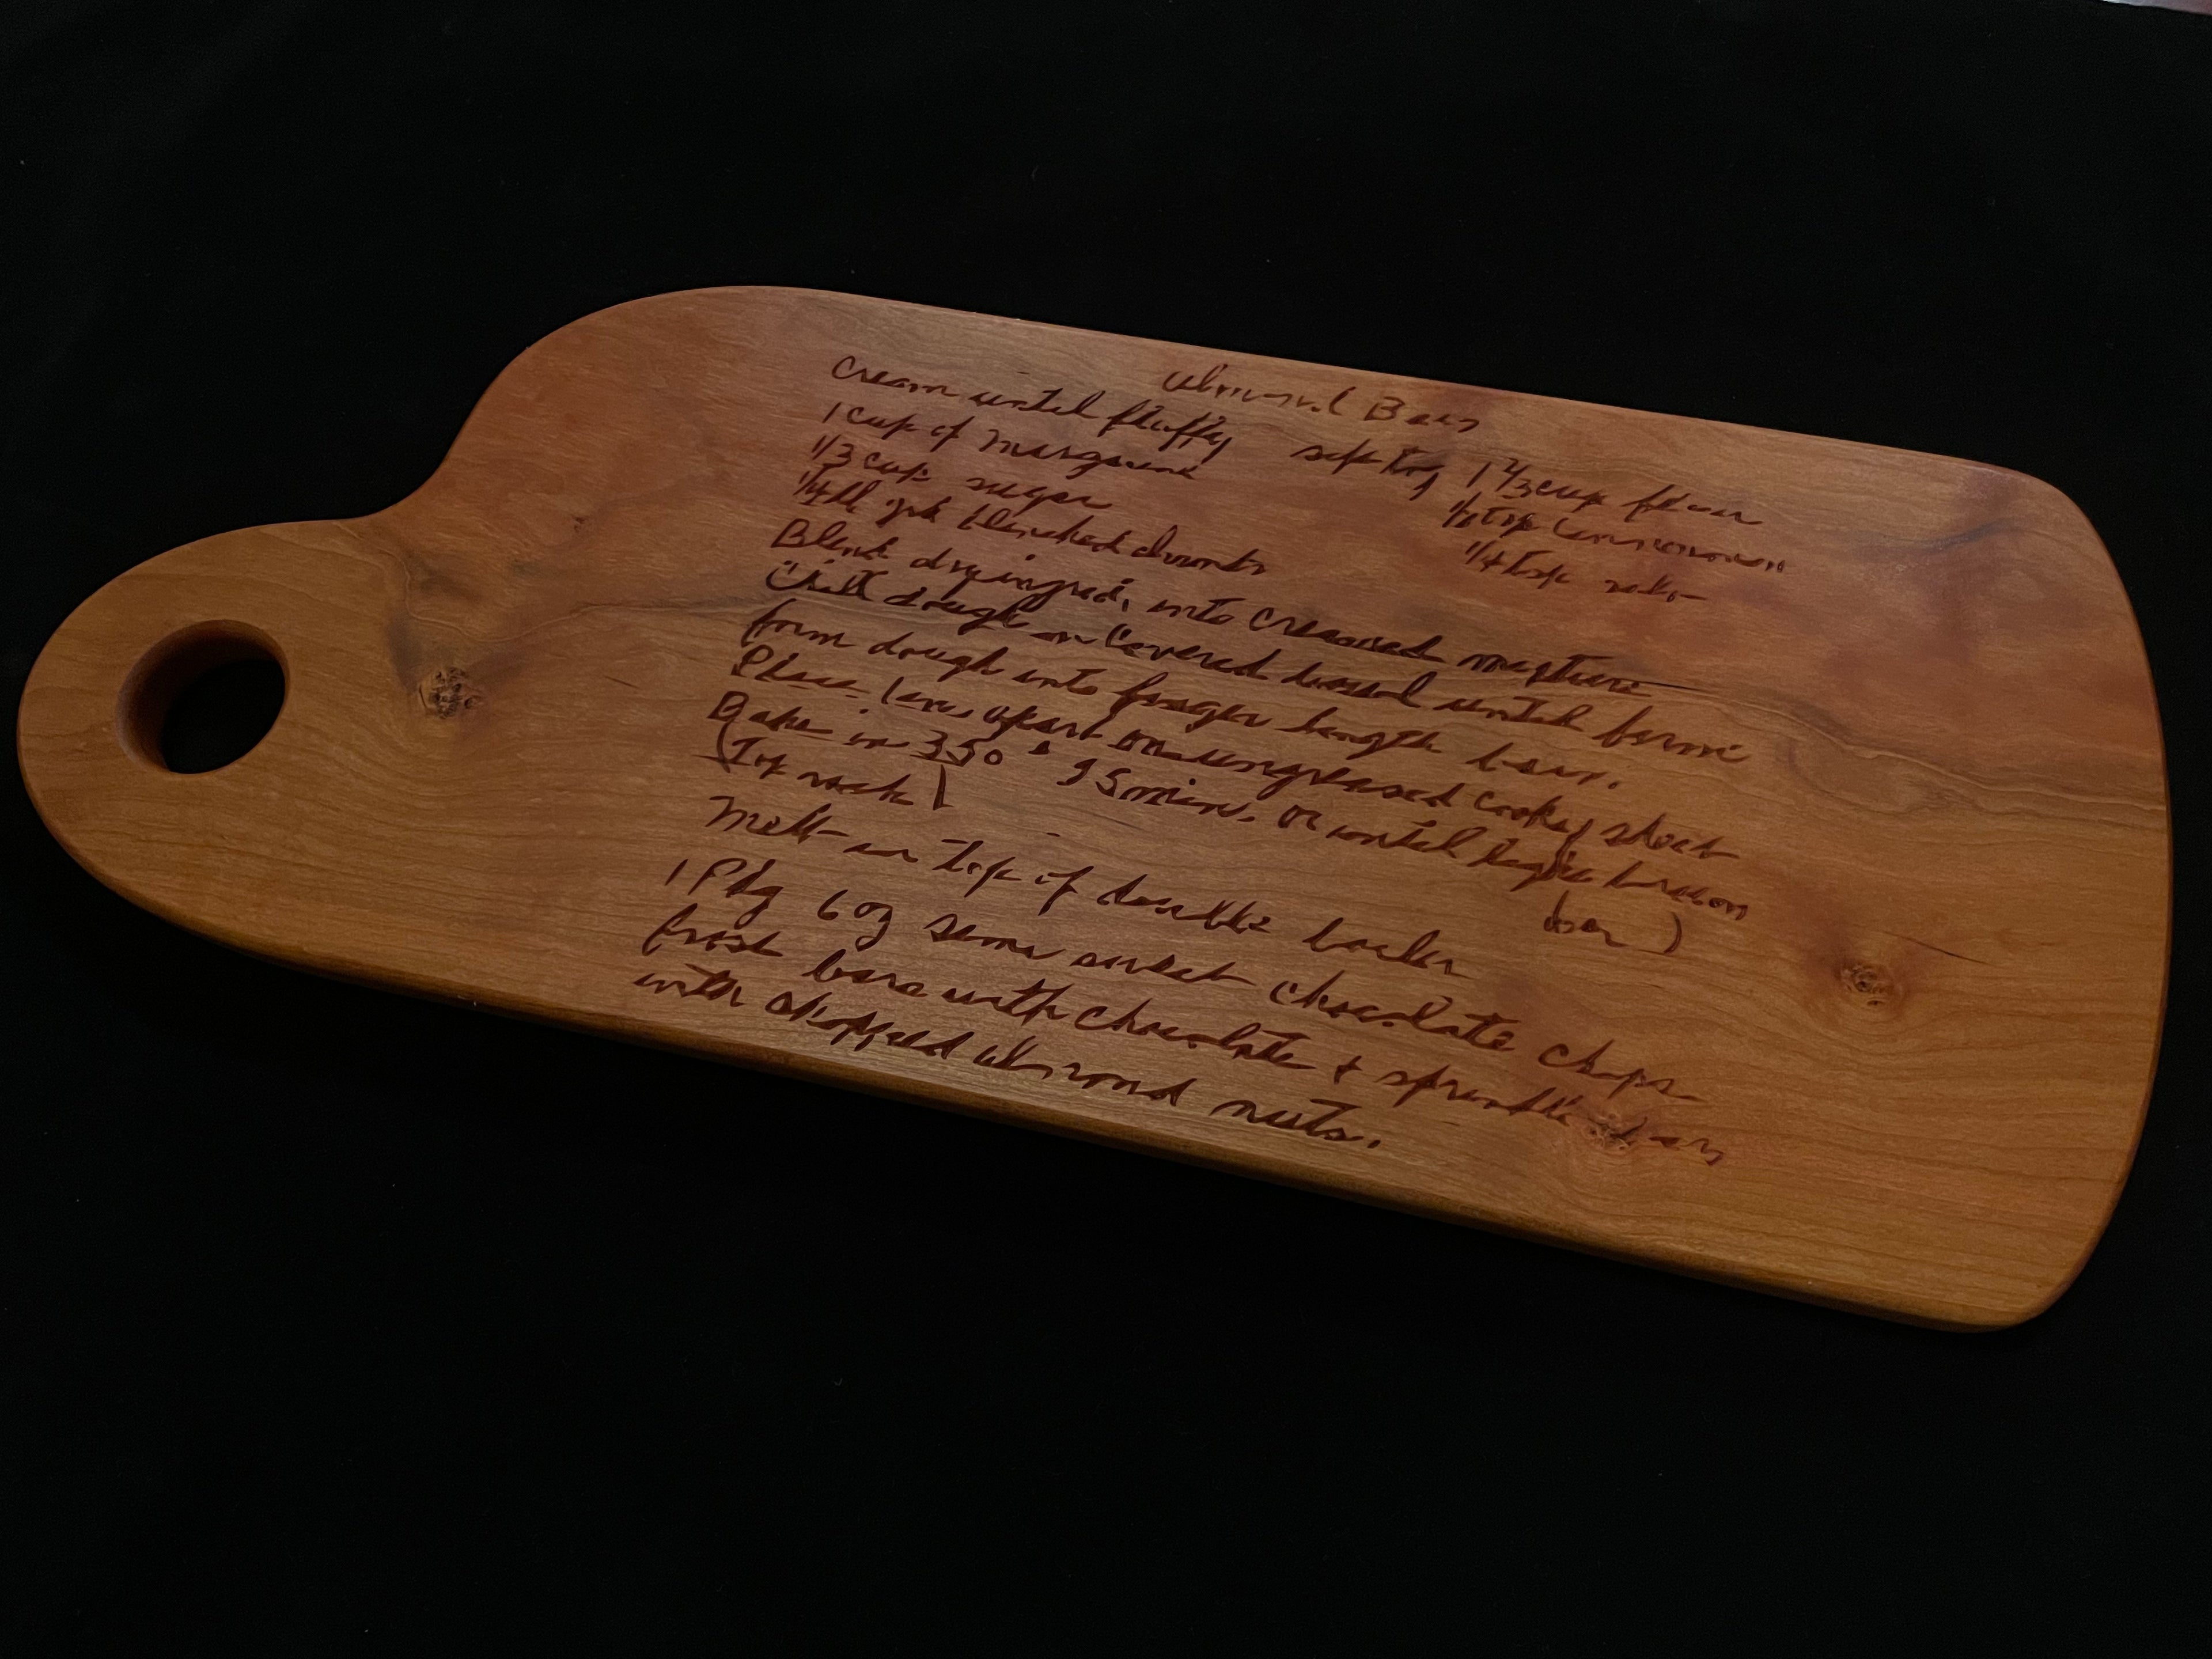 Almond Bars
Cream until fluffy
1 cup of Margarine
1/3 cup sugar
blanched almonds
1 2/3 cup flour
tsp Cinnamon
1/4 tsp salt
Blend dry ingred. into Creamed mixture
Chill dough in Covered bowl until firm
form dough into finger length bars.
Place 1 in. apart on ungreased cooky sheet
Bake in 350° 15 min. or until light brown
(Top rack)
Melt in top of double boiler
1 Pkg 6 oz semi sweet chocolate chips
frost bars with chocolate + sprinkle
with chopped almond nuts.